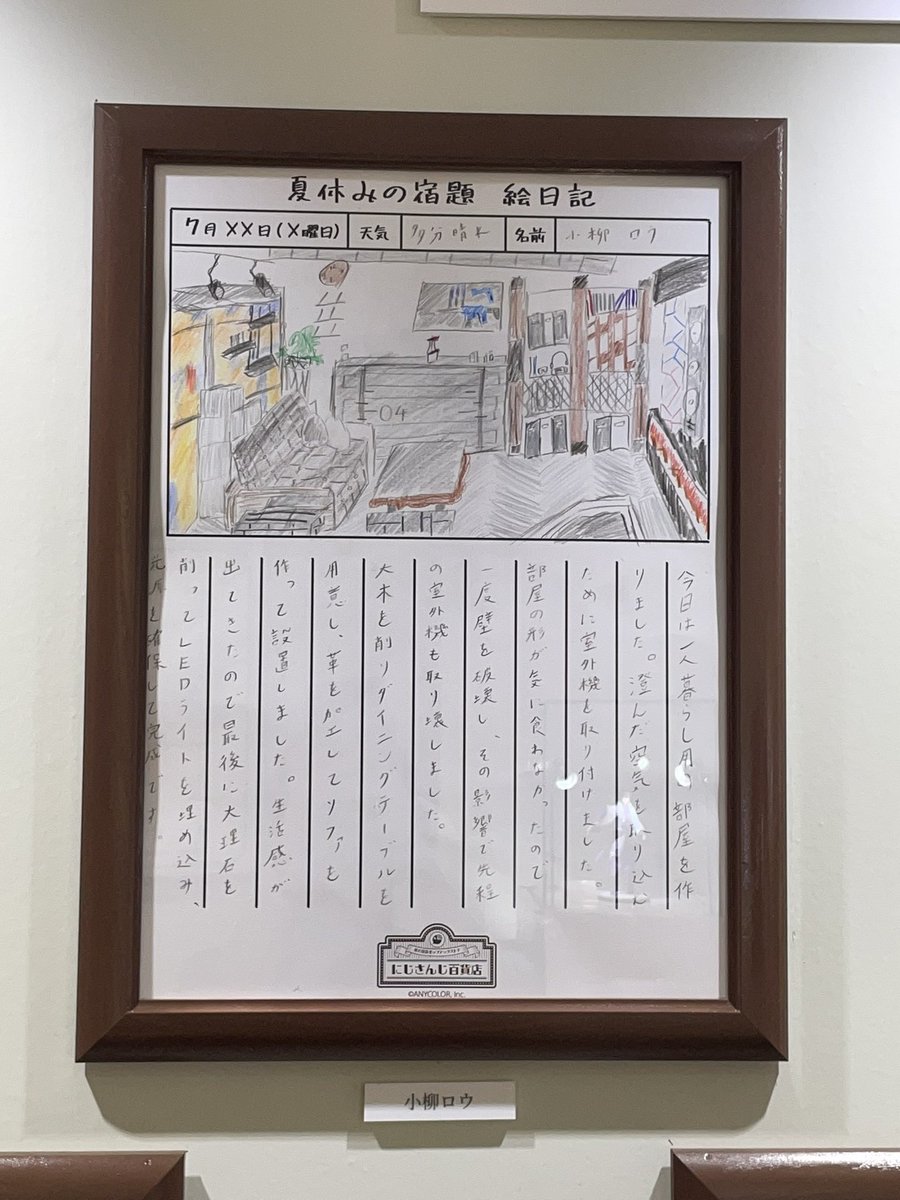 夏休みの宿題 絵日記
7月××日(×曜日) 天気 多分晴れ 名前 小柳 ロウ
04
今日は一人暮らし用の部屋を作
りました。澄んだ空気を取り込む
ために室外機を取り付けました。
部屋の形が気に食わなかったので
一度壁を破壊し、その影響で先程
の室外機も取り壊しました。
大木を削りダイニングテーブルを
用意し、革を加工してソファを
作って設置しました。生活感が
出てきたので最後に大理石を
削ってLEDライトを埋め込み、
光源を確保して完成です。
にじさんじ百貨店
©ANYCOLOR, Inc.
小柳ロウ